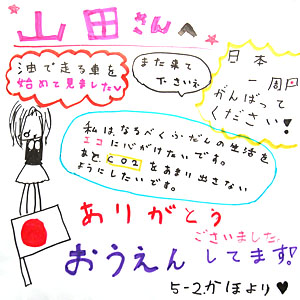 山田さんへ
油で走る車を
始めて見ました♥
また来て
下さいネ
日本
一周
がんばって
ください!
私はなるべくふだんの生活を
エコに心がけたいです。
まだCO2をあまり出さない
ようにしたいです。
ありがとう
ございました。
おうえんしてます!
5-2かほより♥